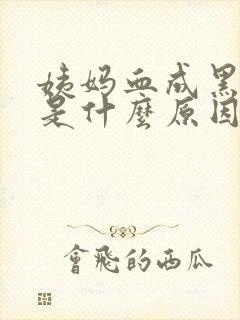 姨妈血成黑
是什麼原因
會飛的西瓜